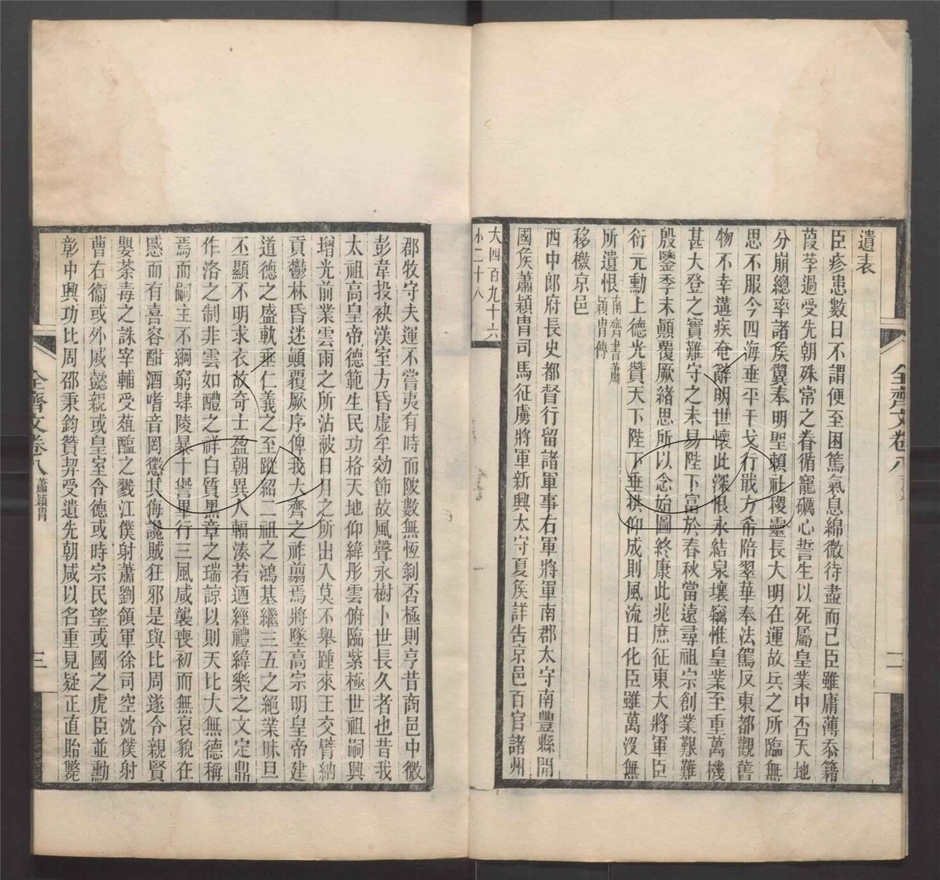 遺表
臣疹患數日不謂便至困篤氣息綿微待盡而已臣雖庸薄忝籍
葭莩過受先朝殊常之眷循寵礪心誓生以死屬皇業中否天地
分崩總率諸矦翼奉明聖賴社稷靈長大明在運故兵之所臨無
思不服今四海垂平干戈行戢方希陪翠華奉法駕反東都觀舊
物不幸遘疾奄辭明世懷此深恨永結泉壤竊惟皇業至重萬機
甚大登之實難守之未易陛下富於春秋當遠尋祖宗創業艱難
殷鑒季末顛覆厥緒思所以念始圖終康此兆庶征東大將軍臣
衍元勳上德光贊天下陛下垂拱仰成則風流日化臣雖萬沒無
所遺恨南齊書蕭穎胄傳
移檄京邑
西中郎府長史都督行留諸軍事右軍將軍南郡太守南豐縣開
國矦蕭穎胄司馬征虜將軍新興太守夏矦詳告京邑百官諸州
大四百九十六
小二十八
全齊文卷八
二
郡牧守夫運不常夷有時而陂數無恆剝否極則亨昔商邑中微
彭韋投袂漢室方昏虛牟効節故風聲永樹卜世長久者也昔我
太祖高皇帝德範生民功格天地仰緯彤雲俯臨紫極世祖嗣興
增光前業雲雨之所沾被日月之所出入莫不舉踵來王交臂納
貢鬱林昏迷顛覆厥序俾我大齊之祚翦焉將墜高宗明皇帝建
道德之盛軌垂仁義之至蹤紹二祖之鴻基繼三五之絕業昧旦
丕顯不明求衣故奇士盈朝異人輻湊若迺經禮緯樂之文定鼎
作洛之制非雲如醴之祥白質黑章之瑞諒以則天比大無德稱
焉而嗣主不綱窮肆陵暴十諐畢行三風咸襲喪初而無哀貌在
慼而有喜容酣酒嗜音罔懲其侮讒賊狂邪是與比周遂令親賢
嬰荼毒之誅宰輔受葅醢之戮江僕射蕭劉領軍徐司空沈僕射
曹右衞或外戚懿親或皇室令德或時宗民望或國之虎臣並勳
彰中興功比周邵秉鈞贊契受遺先朝咸以名重見疑正直貽斃
全齊文卷八
蕭穎胄
三